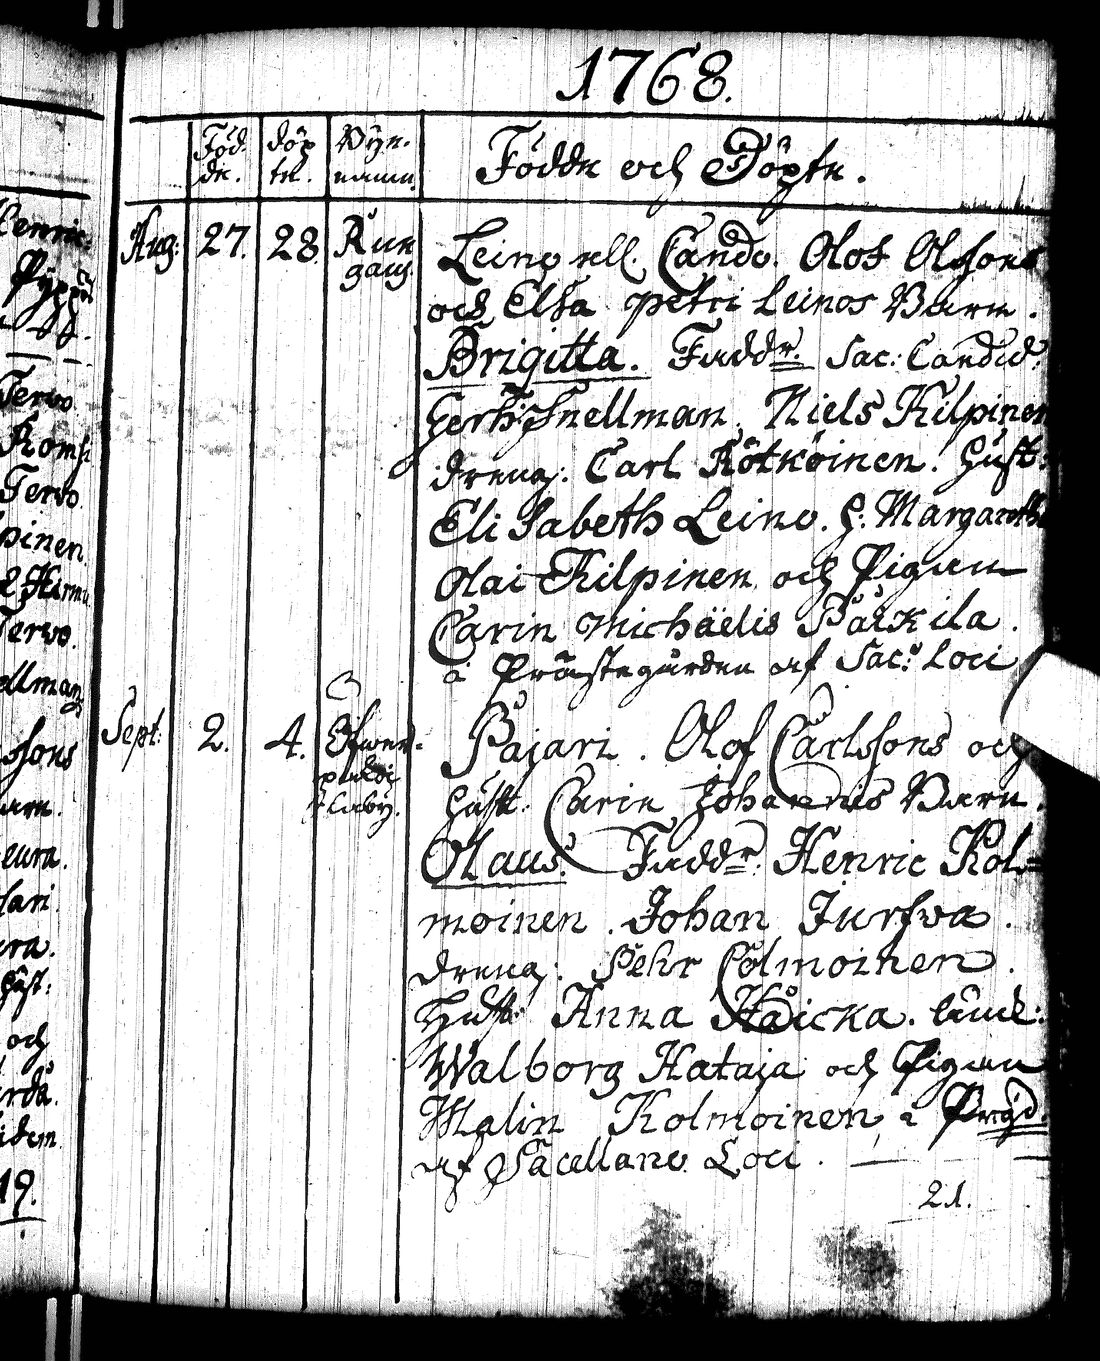 1768.
Föd-
de.
döp
te.
Byn.
namn.
Födde och Döpte.
Aug: 27. 28. Kun
gaus.
Leino vell. Cando. Olof Olssons
och Elsa Petri Leinos Barn.
Brigitta. Faddr. Sac: Candid:
Gerh: Snellman. Niels Kilpinen
dreng: Carl Rötköinen. Hust:
Elisabeth Leino. H: Margareth
Olai Kilpinen och Pigan
Carin Michäelis Parkila.
å Prästegården af Sac: Loci
Sept: 2. 4. Öfwer-
laby.
Pajari. Olof Carlssons och
Hust. Carin Johannis Barn.
Olaus. Faddr. Henric Kol=
moinen. Johan Jurfva.
dreng: Pehr Colmoinen.
Hust: Anna Håicka.
Walborg Hataja och Pigan
Malin Kolmoinen, å Prgd.
af Sacellano Loci.
21.
Henric:
Tervo.
Tervo
pinen
Tervo.
ellman
ssons
arn.
eura.
lari
ra.
Hust:
och
idem.
19.